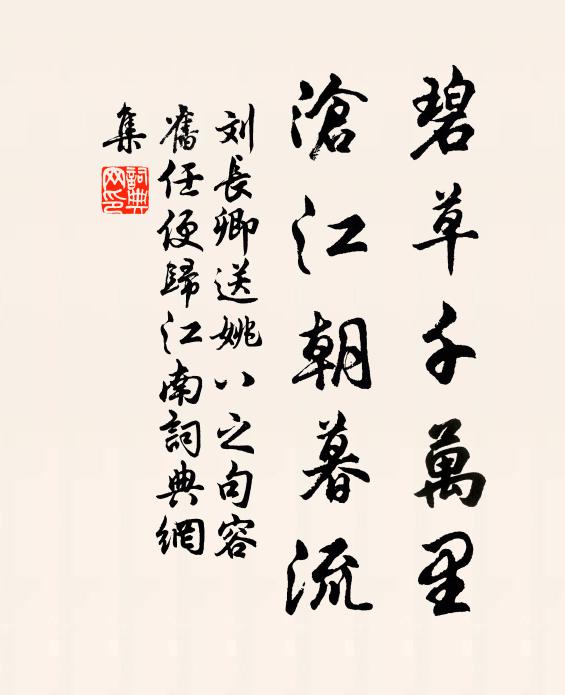 碧草千萬里
滄江朝暮流
刘長卿送姚八之句容
舊任便歸江南詞典網
集
詞典
网印